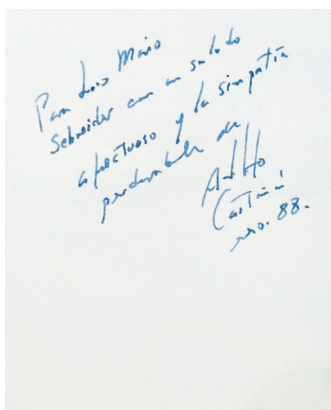 Para Luis Mario
Schneider con un saludo
afectuoso y la simpatía
perdurable de
Adolfo
Castañón
ero. 88.